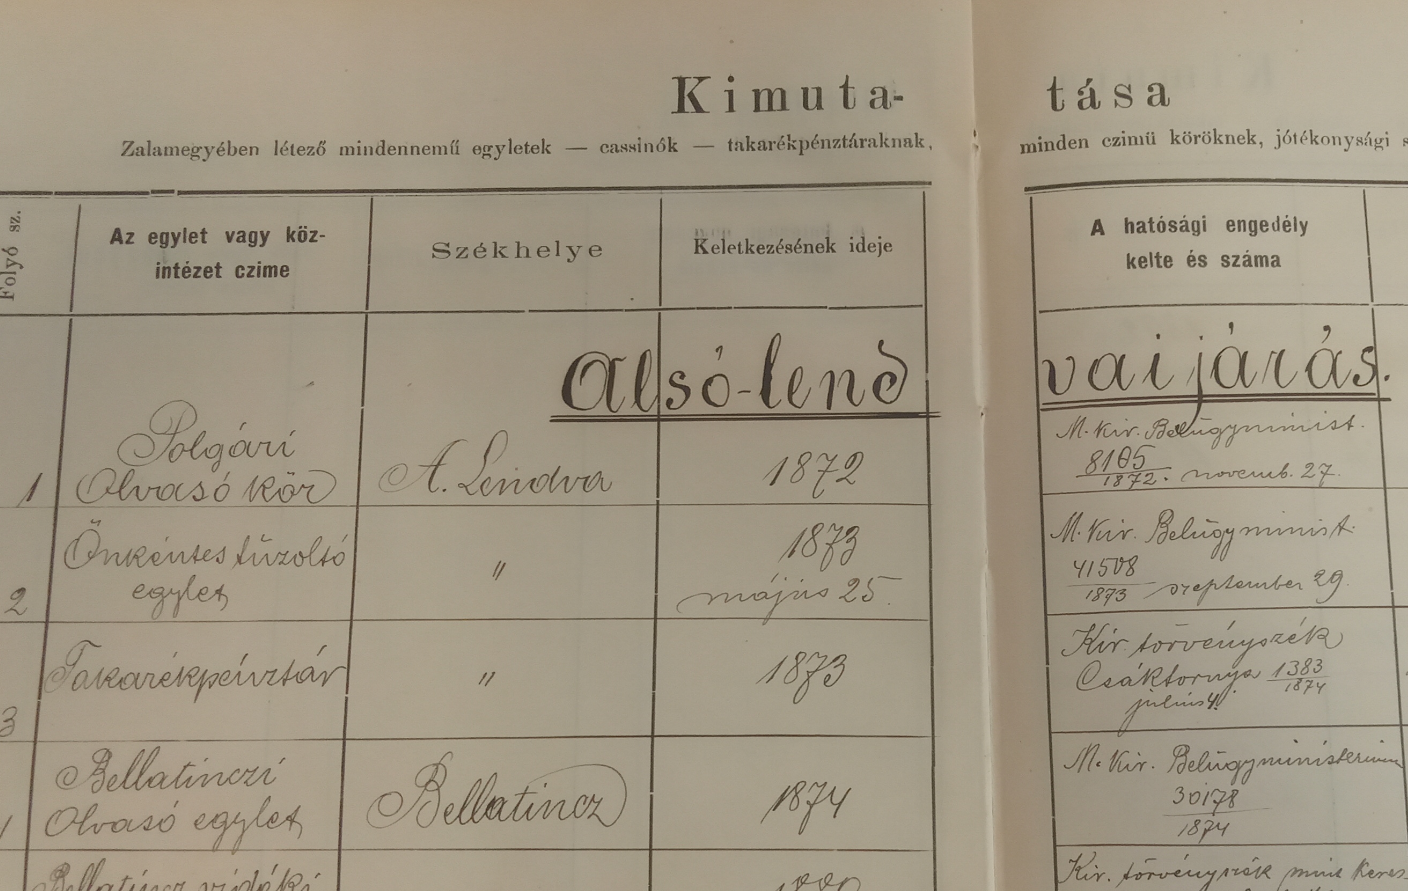 Kimuta- tása
Zalamegyében létező mindennemű egyletek — cassinók — takarékpénztáraknak, minden czimű köröknek, jótékonysági s
Folyó sz.
Az egylet vagy köz-
intézet czime
Székhelye
Keletkezésének ideje
A hatósági engedély
kelte és száma
Alsó-lend vai járás.
1
Polgári
Olvasó kör
A. Lendva
1872
M. kir. Belügyminist.
8105
1872. novemb. 27.
2
Önkéntes tűzoltó
egylet
"
1873
május 25.
M. kir. Belügyminist.
41508
1873 szeptember 29.
3
Takarékpénztár
"
1873
Kir törvényszék
Csáktornya 1383
1874
július 4.
Bellatinczi
Olvasó egylet
Bellatincz
1874
M. Kir. Belügyministerium
30178
1874
Bellatincz vidéki
Kir. törvényszék mint keres-